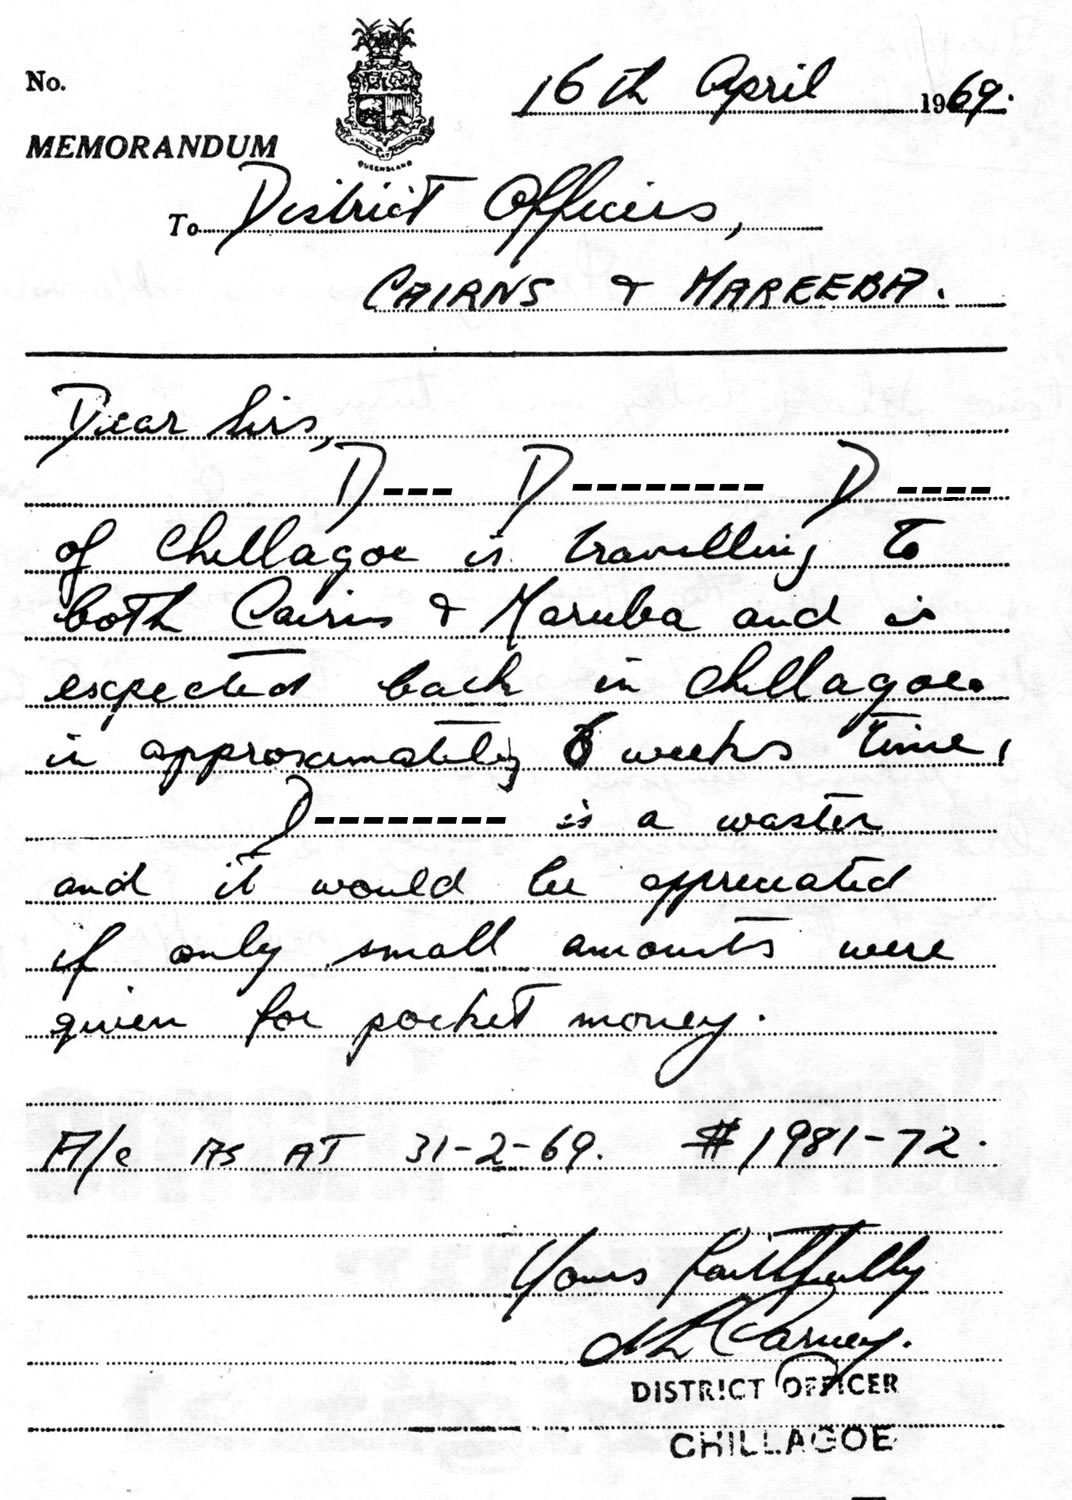 No.
16th April 1969.
QUEENSLAND
MEMORANDUM
To District Officers,
CAIRNS & MAREEBA.
Dear Sirs,
D--- D-------- D----
of Chillagoe is travelling to
both Cairns & Mareeba and is
expected back in Chillagoe
in approximately 6 weeks time,
D-------- is a waster
and it would be appreciated
if only small amounts were
given for pocket money.
A/c AS AT 31-2-69. $1981-72.
Yours faithfully
Carney.
DISTRICT OFFICER
CHILLAGOE